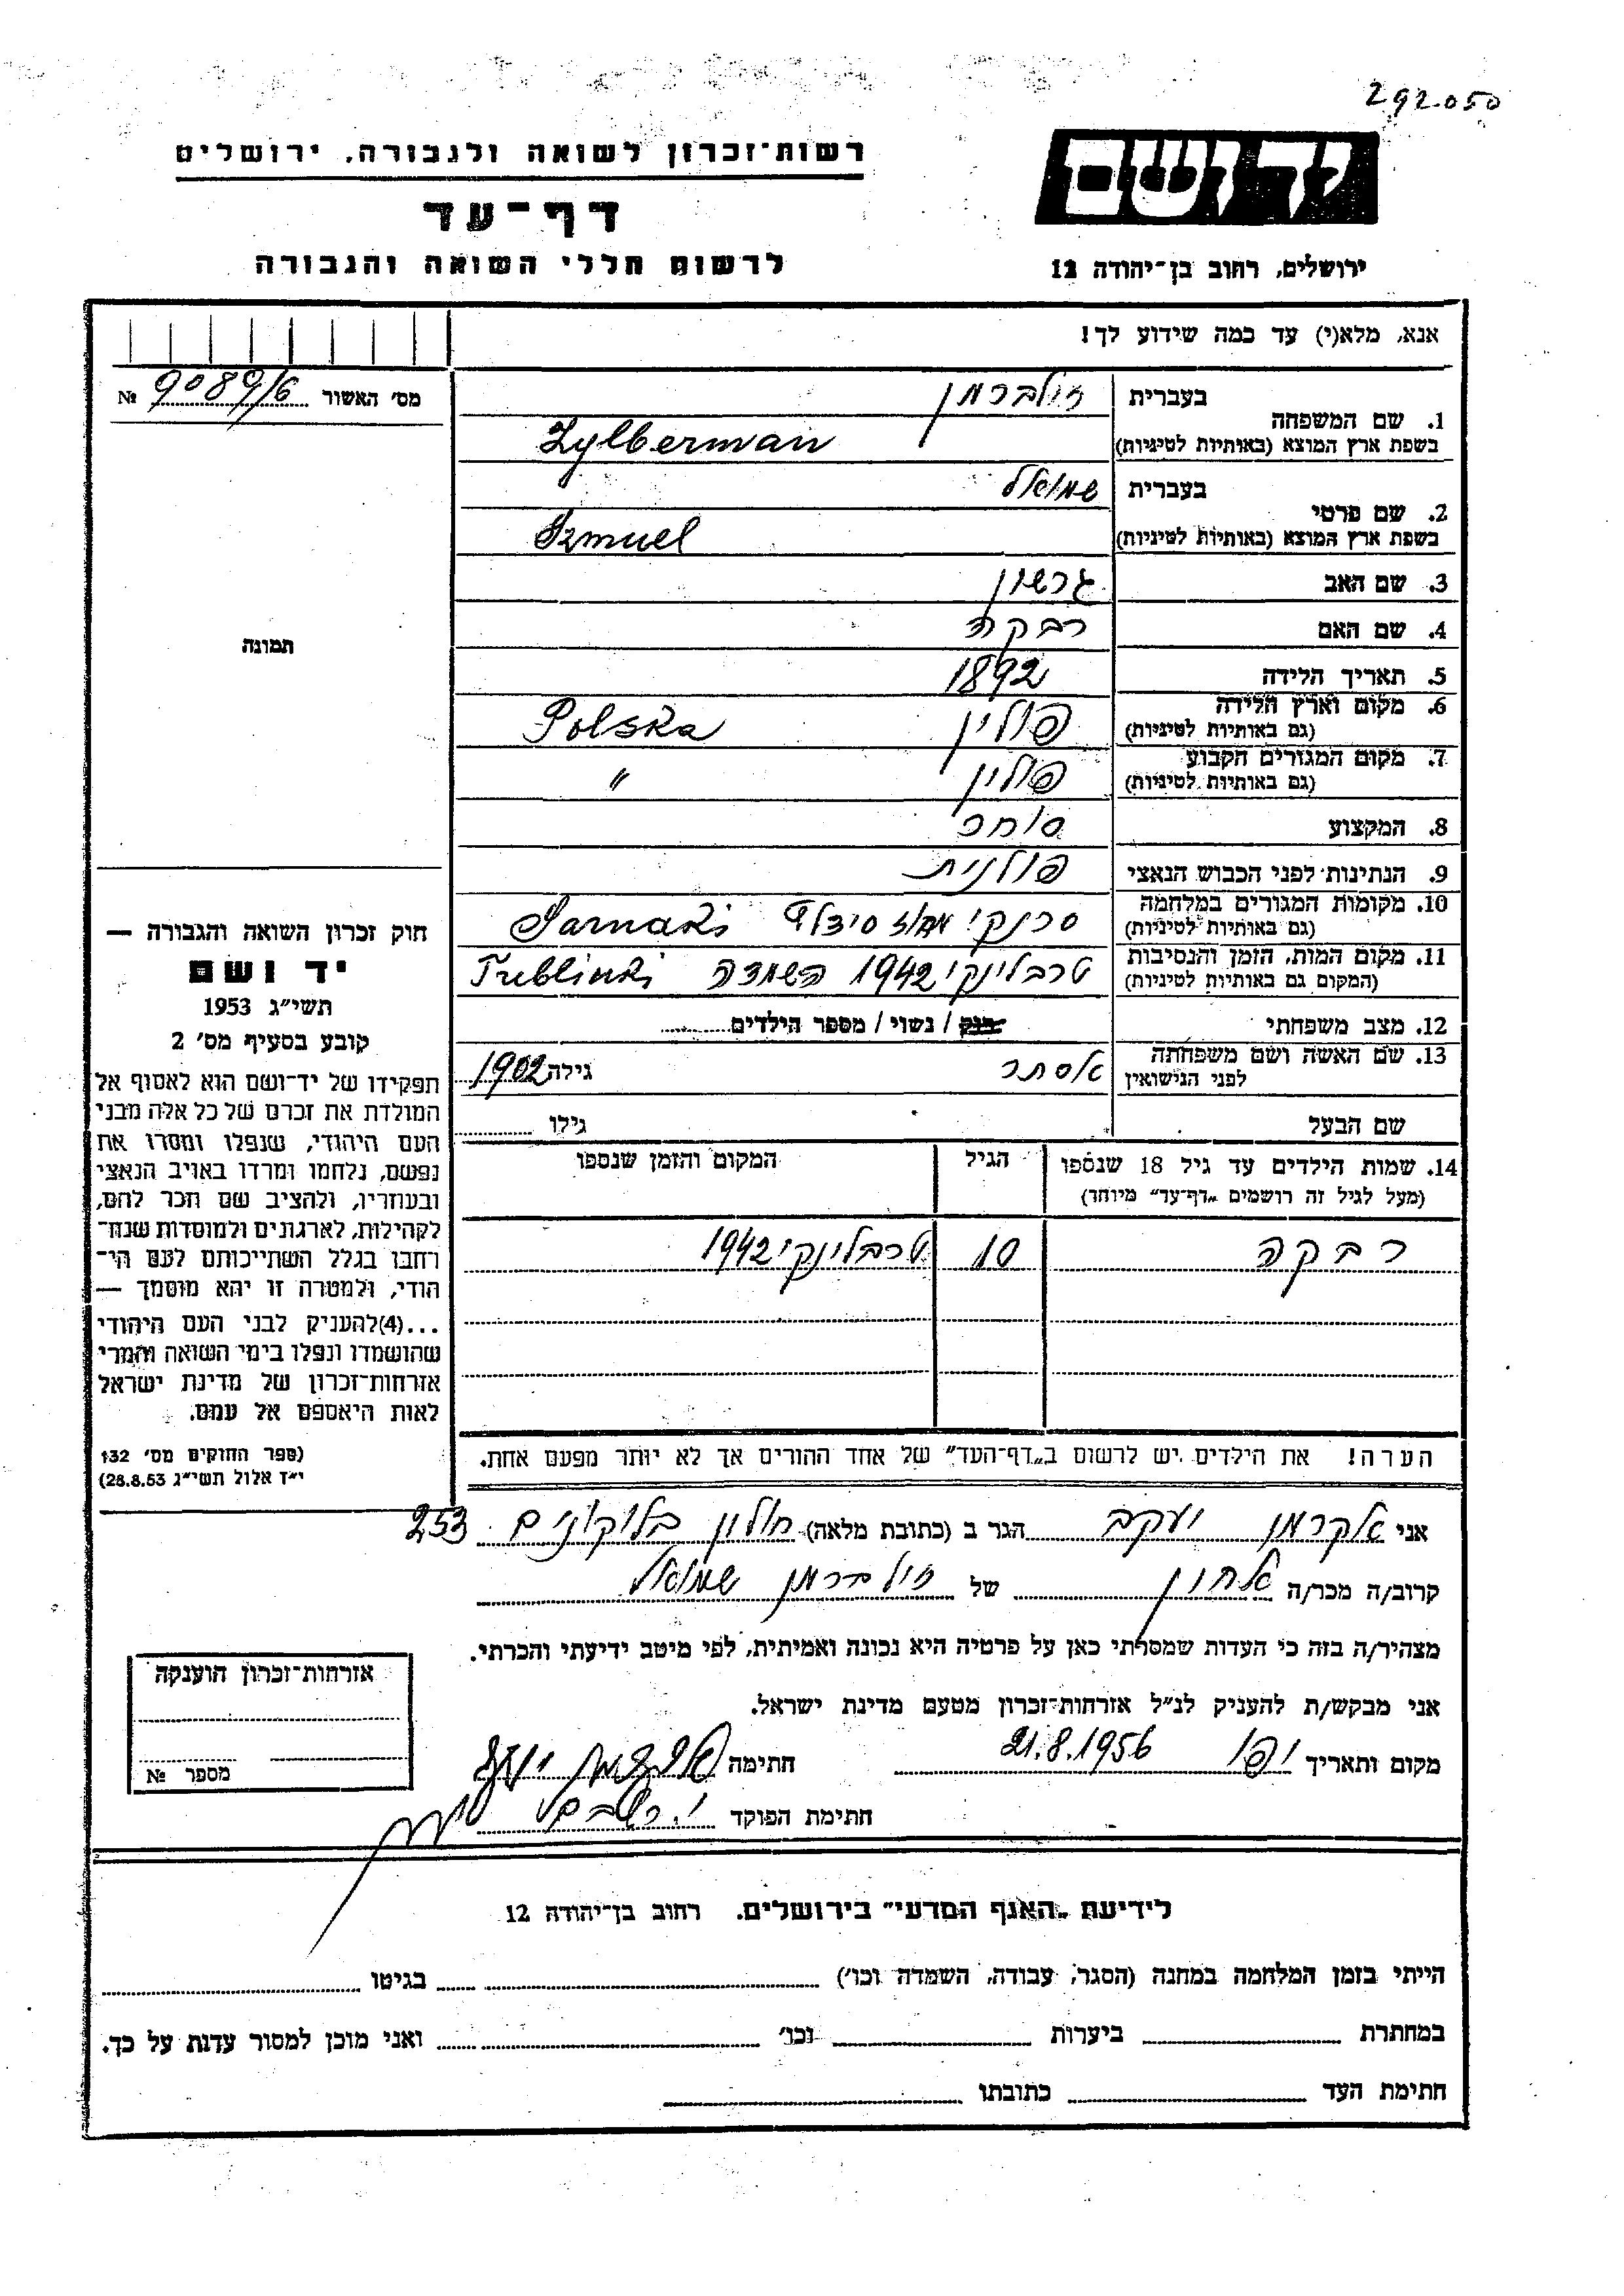 292050
רשות־זכרון לשואה ולגבורה, ירושלים
יד ושם
דף־עד
לרשום חללי השואה והגבורה
ירושלים, רחוב בן־יהודה 12
אנא, מלא(י) עד כמה שידוע לך!
מס׳ האשור 9089/6 №
1. שם המשפחה
בעברית זילברמן
בשפת ארץ המוצא (באותיות לטיניות) Zylberman
2. שם פרטי
בעברית שמואל
בשפת ארץ המוצא (באותיות לטיניות) Szmuel
3. שם האב גרשון
4. שם האם רבקה
5. תאריך הלידה 1892
6. מקום וארץ הלידה פולין Polska
(גם באותיות לטיניות)
7. מקום המגורים הקבוע פולין "
(גם באותיות לטיניות)
8. המקצוע סוחר
9. הנתינות לפני הכבוש הנאצי פולנית
10. מקומות המגורים במלחמה סרנקי סידלץ Sarnaki
(גם באותיות לטיניות)
11. מקום המות, הזמן והנסיבות טרבלינקי 1942 השמדה Trublinki
(המקום גם באותיות לטיניות)
12. מצב משפחתי רווק / נשוי / מספר הילדים
13. שם האשה ושם משפחתה אסתר גילה 1902
לפני הנישואין
שם הבעל גילו
14. שמות הילדים עד גיל 18 שנספו הגיל המקום והזמן שנספו
(מעל לגיל זה רושמים „דף־עד" מיוחד)
רבקה 10 טרבלינקי 1942
הערה! את הילדים יש לרשום ב„דף־העד" של אחד ההורים אך לא יותר מפעם אחת.
תמונה
חוק זכרון השואה והגבורה —
יד ושם
תשי״ג 1953
קובע בסעיף מס׳ 2
תפקידו של יד־ושם הוא לאסוף אל
המולדת את זכרם של כל אלה מבני
העם היהודי, שנפלו ומסרו את
נפשם, נלחמו ומרדו באויב הנאצי
ובעוזריו, ולהציב שם וזכר להם,
לקהילות, לארגונים ולמוסדות שנח־
רבו בגלל השתייכותם לעם הי־
הודי, ולמטרה זו יהא מוסמך —
...(4)להעניק לבני העם היהודי
שהושמדו ונפלו בימי השואה והמרי
אזרחות־זכרון של מדינת ישראל
לאות היאספם אל עמם.
(ספר החוקים מס׳ 132
י״ז אלול תשי״ג 28.8.53)
אני אקרמן יעקב הגר ב (כתובת מלאה) חולון בלוקונים 253
קרוב/ה מכר/ה של זילברמן שמואל
מצהיר/ה בזה כי העדות שמסרתי כאן על פרטיה היא נכונה ואמיתית, לפי מיטב ידיעתי והכרתי.
אני מבקש/ת להעניק לנ״ל אזרחות־זכרון מטעם מדינת ישראל.
מקום ותאריך יפו 21.8.1956 חתימה אקרמן יעקב
חתימת הפוקד
אזרחות־זכרון הוענקה
מספר №
לידיעת „האגף המדעי" בירושלים. רחוב בן־יהודה 12
הייתי בזמן המלחמה במחנה (הסגר, עבודה, השמדה וכו׳) בגיטו
במחתרת ביערות וכו׳ ואני מוכן למסור עדות על כך.
חתימת העד כתובתו